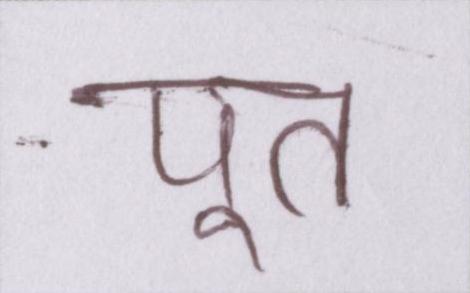 पूत